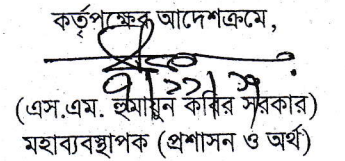 কর্তৃপক্ষের আদেশক্রমে,
(এস.এম. হুমায়ুন কবির সরকার)
মহাব্যবস্থাপক (প্রশাসন ও অর্থ)